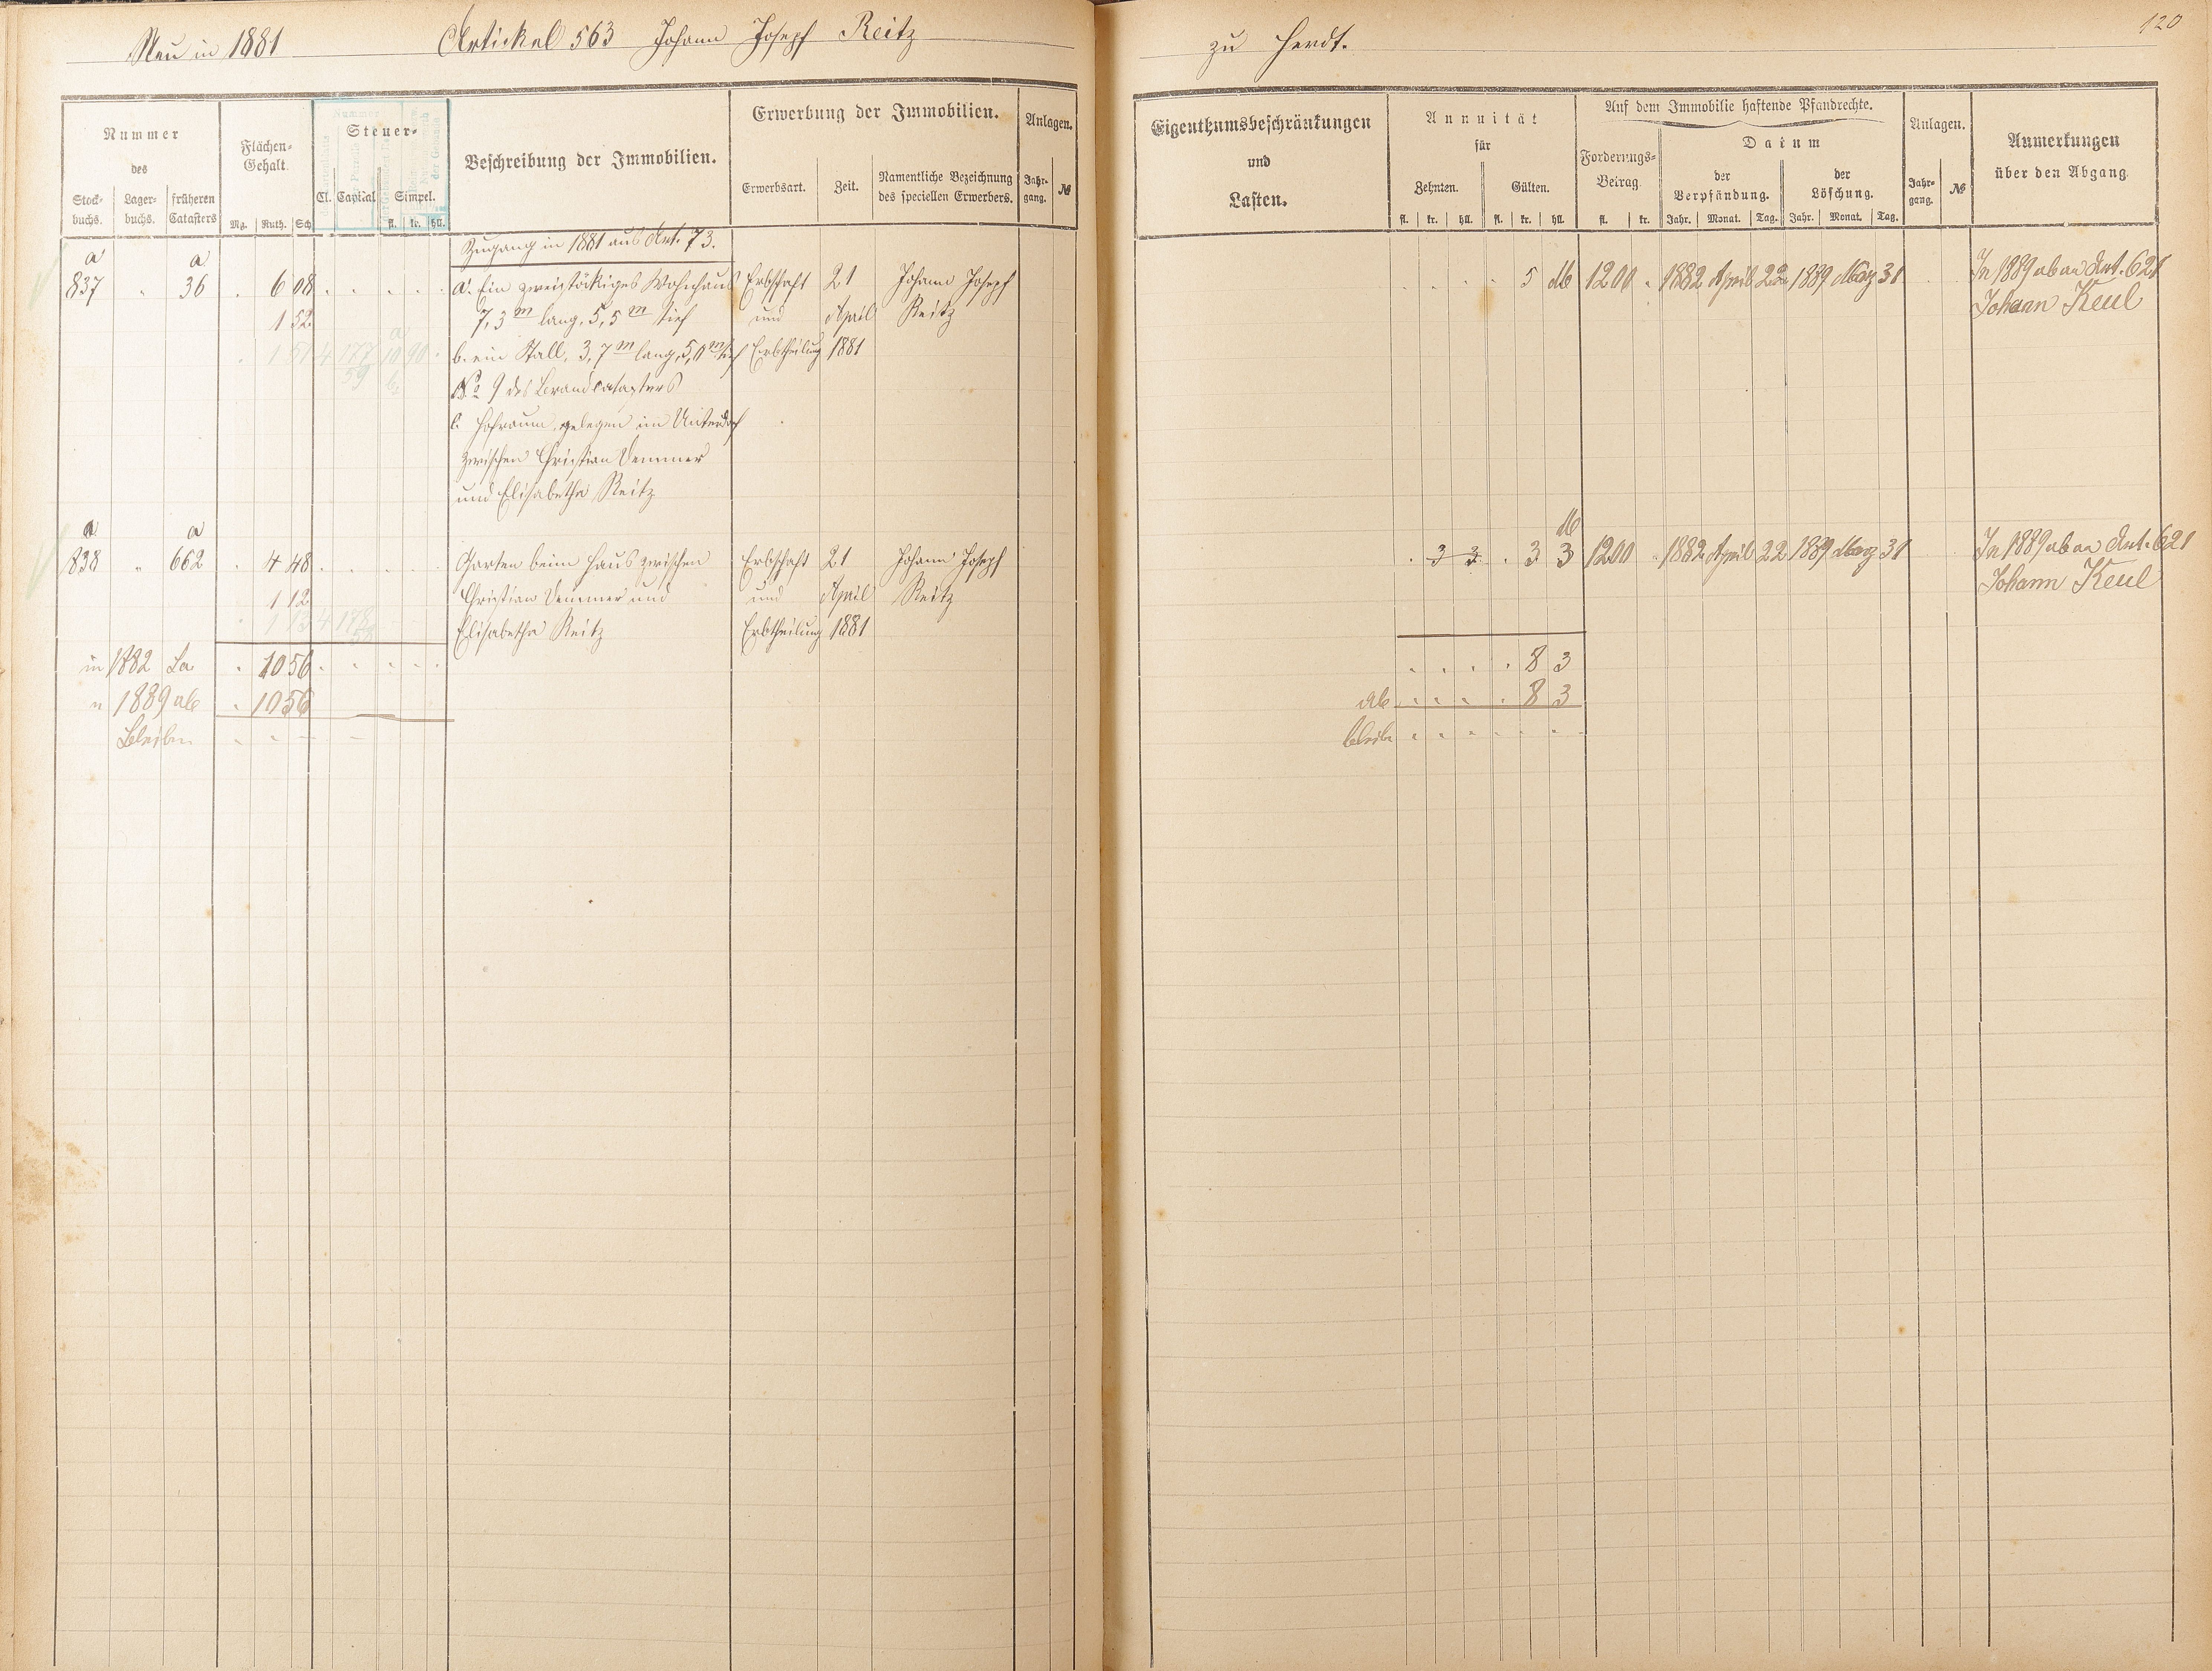 Neu in 1881 Artickel 563 Johann Joseph Reitz
zu Herdt.
120
Nummer
des
Stock-
buchs.
Lager-
buchs.
früheren
Catasters
Flächen-
Gehalt.
Mg. Ruth. Sch
Steuer-
Cl. Capital Simpel.
fl. kr. hll.
Beschreibung der Immobilien.
Erwerbung der Immobilien.
Erwerbsart. Zeit.
Namentliche Bezeichnung
des speciellen Erwerbers.
Anlagen.
Jahr-
gang.
№
Eigenthumsbeschränkungen
und
Lasten.
Annuität
für
Zehnten. Gülten.
fl. kr. hll. fl. kr. hll.
Auf dem Immobilie haftende Pfandrechte.
Forderungs-
Betrag.
fl. kr.
Datum
der
Verpfändung.
der
Löschung.
Jahr. Monat. Tag. Jahr. Monat. Tag.
Anlagen.
Jahr-
gang.
№
Anmerkungen
über den Abgang.
Zugang in 1881 aus Art. 73.
a a
837 " 36 . 6 08 a. Ein zweistöckiges Wohnhaus Erbschaft 21 Johann Joseph
1 52 7,3 m lang, 5,5 m tief und April Reitz
1 51 4 177 10 90 b. ein Stall, 3,7 m lang, 5,0 m tief Erbtheilung 1881
59
No 9 des Brandcatasters
c. Hofraum, gelegen im Unterdorf
zwischen Christian Demmer
und Elisabetha Reitz
5 1200 " 1882 April 22 1889 März 31 In 1889 ab an Art. 621
Johann Keul
a a
838 " 662 . 4 48 Garten beim Haus zwischen Erbschaft 21 Johann Joseph
1 12 Christian Demmer und und April Reitz
1 13 4 178 Elisabetha Reitz Erbtheilung 1881
58
3 3 . 3 3 1200 " 1882 April 22 1889 März 31 In 1889 ab an Art. 621
Johann Keul
in 1882 Sa . 10 56
" 1889 ab . 10 56
Bleiben
8 3
ab 8 3
bleibt